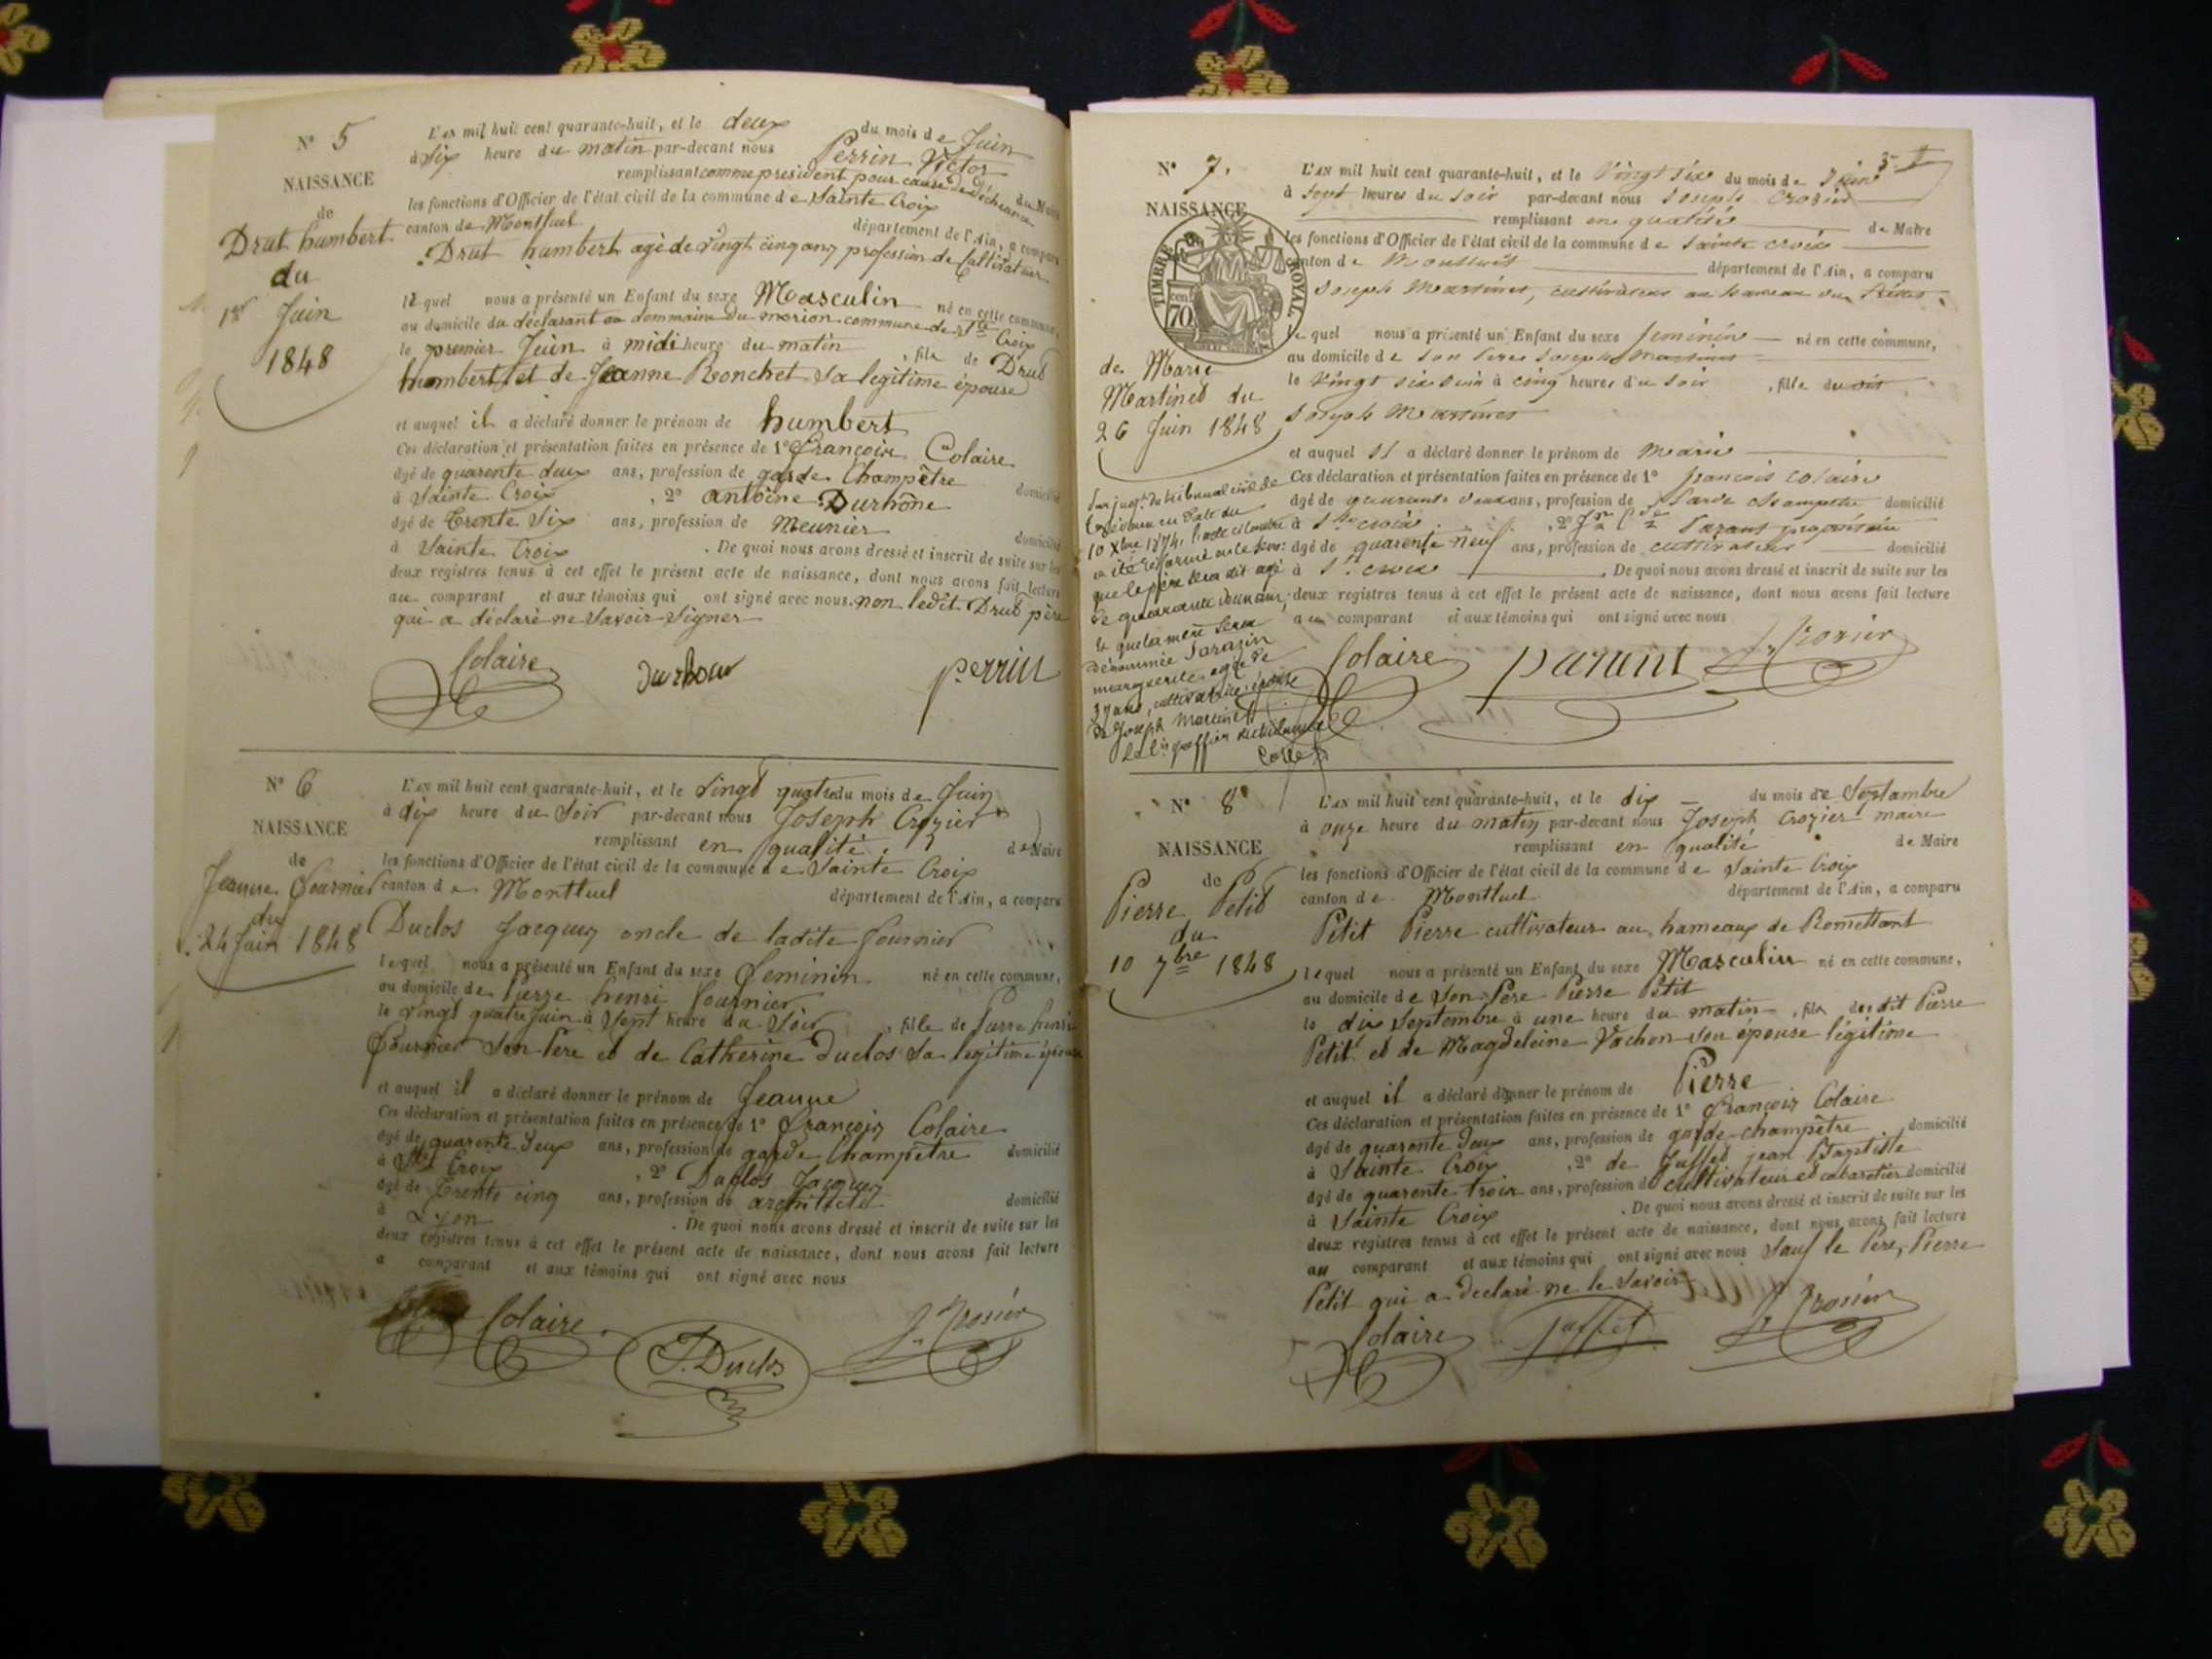 N° 5
NAISSANCE
de
Drut humbert
du
1er Juin
1848
L'AN mil huit cent quarante-huit, et le deux du mois de Juin
à Six heure du matin par-devant nous Perrin Victor
remplissant comme president pour cause de déchéance du Maire
les fonctions d'Officier de l'état civil de la commune de Sainte Croix
canton de Montluel département de l'Ain, a comparu
Drut humbert agé de vingt cinq ans profession de Cultivateur
lequel nous a présenté un Enfant du sexe Masculin né en cette commune,
au domicile du déclarant au dommaine du morion commune de Ste Croix
le premier Juin à midi heure du matin, fils de Drut
humbert et de Jeanne Ronchet Sa legitime épouse
et auquel il a déclaré donner le prénom de humbert
Ces déclaration et présentation faites en présence de 1° François Colaire
âgé de quarente deux ans, profession de garde Champêtre domicilié
à Sainte Croix, 2° antoine Durhône
âgé de Trente Six ans, profession de Meunier domicilié
à Sainte Croix. De quoi nous avons dressé et inscrit de suite sur les
deux registres tenus à cet effet le présent acte de naissance, dont nous avons fait lecture
au comparant et aux témoins qui ont signé avec nous. non ledit Drut père
qui a déclaré ne Savoir Signer
Colaire durhone perrin
N° 6
NAISSANCE
de
Jeanne Fournier
du
24 Juin 1848
L'AN mil huit cent quarante-huit, et le vingt quatre du mois de Juin
à dix heure du Soir par-devant nous Joseph Crozier
remplissant en qualité de Maire
les fonctions d'Officier de l'état civil de la commune de Sainte Croix
canton de Montluel département de l'Ain, a comparu
Duclos Jacques oncle de ladite fournier
lequel nous a présenté un Enfant du sexe Feminin né en cette commune,
au domicile de Pierre henri fournier
le vingt quatre Juin à Sept heure du Soir, fille de Pierre henri
Fournier Son Pere et de Catherine Duclos Sa legitime épouse
et auquel il a déclaré donner le prénom de Jeanne
Ces déclaration et présentation faites en présence de 1° François Colaire
âgé de quarente Deux ans, profession de garde Champêtre domicilié
à Ste Croix, 2° Duclos Jacques
âgé de Trente cinq ans, profession de architecte domicilié
à Lyon. De quoi nous avons dressé et inscrit de suite sur les
deux registres tenus à cet effet le présent acte de naissance, dont nous avons fait lecture
a comparant et aux témoins qui ont signé avec nous
Colaire J. Duclos J. Crosier
N° 7.
NAISSANCE
TIMBRE ROYAL
70 cen
de Marie
Martinet du
26 Juin 1848
L'AN mil huit cent quarante-huit, et le Vingt six du mois de Juin
à Sept heures du Soir par-devant nous Joseph Crozier
remplissant en qualité de Maire
les fonctions d'Officier de l'état civil de la commune de Sainte croix
canton de Montluel département de l'Ain, a comparu
Joseph Martinet, cultivateur au hameau du
lequel nous a présenté un Enfant du sexe feminin né en cette commune,
au domicile de Son Pere Joseph Martinet
le Vingt six Juin à cinq heures du Soir, fille du dit
Joseph Martinet
et auquel il a déclaré donner le prénom de Marie
Ces déclaration et présentation faites en présence de 1° francois colaire
âgé de quarante deux ans, profession de Garde champetre domicilié
à Ste croix, 2° Parant propriétaire
âgé de quarente neuf ans, profession de cultivateur domicilié
à St croix. De quoi nous avons dressé et inscrit de suite sur les
deux registres tenus à cet effet le présent acte de naissance, dont nous avons fait lecture
au comparant et aux témoins qui ont signé avec nous
Colaire parant J. Crozier
Par jugt du tribunal civil de
Trévoux en date du
10 Xbre 1874, l'acte ci contre
a été réformé en ce sens:
que le père sera dit agé
de quarante deux ans,
et que la mère sera
dénommée Sarazin
marguerite, agée de
37 ans, cultivatrice, épouse
de Joseph Martinet
N° 8
NAISSANCE
de
Pierre Petit
du
10 7bre 1848
L'AN mil huit cent quarante-huit, et le dix du mois de Septambre
à onze heure du matin par-devant nous Joseph Crozier maire
remplissant en qualité de Maire
les fonctions d'Officier de l'état civil de la commune de Sainte Croix
canton de Montluel département de l'Ain, a comparu
Petit Pierre cultivateur au hameaux de Romettant
lequel nous a présenté un Enfant du sexe Masculin né en cette commune,
au domicile de Son Pere Pierre Petit
le dix Septembre à une heure du matin, fils du dit Pierre
Petit et de Magdeleine Vachon Son épouse légitime
et auquel il a déclaré donner le prénom de Pierre
Ces déclaration et présentation faites en présence de 1° François Colaire
âgé de quarente deux ans, profession de garde-champêtre domicilié
à Sainte Croix, 2° de Juffet jean Baptiste
âgé de quarente trois ans, profession de cultivateur et cabaretier domicilié
à Sainte Croix. De quoi nous avons dressé et inscrit de suite sur les
deux registres tenus à cet effet le présent acte de naissance, dont nous avons fait lecture
au comparant et aux témoins qui ont signé avec nous Sauf le Pere, Pierre
Petit qui a declaré ne le Savoir
Colaire Juffet J. Crosier